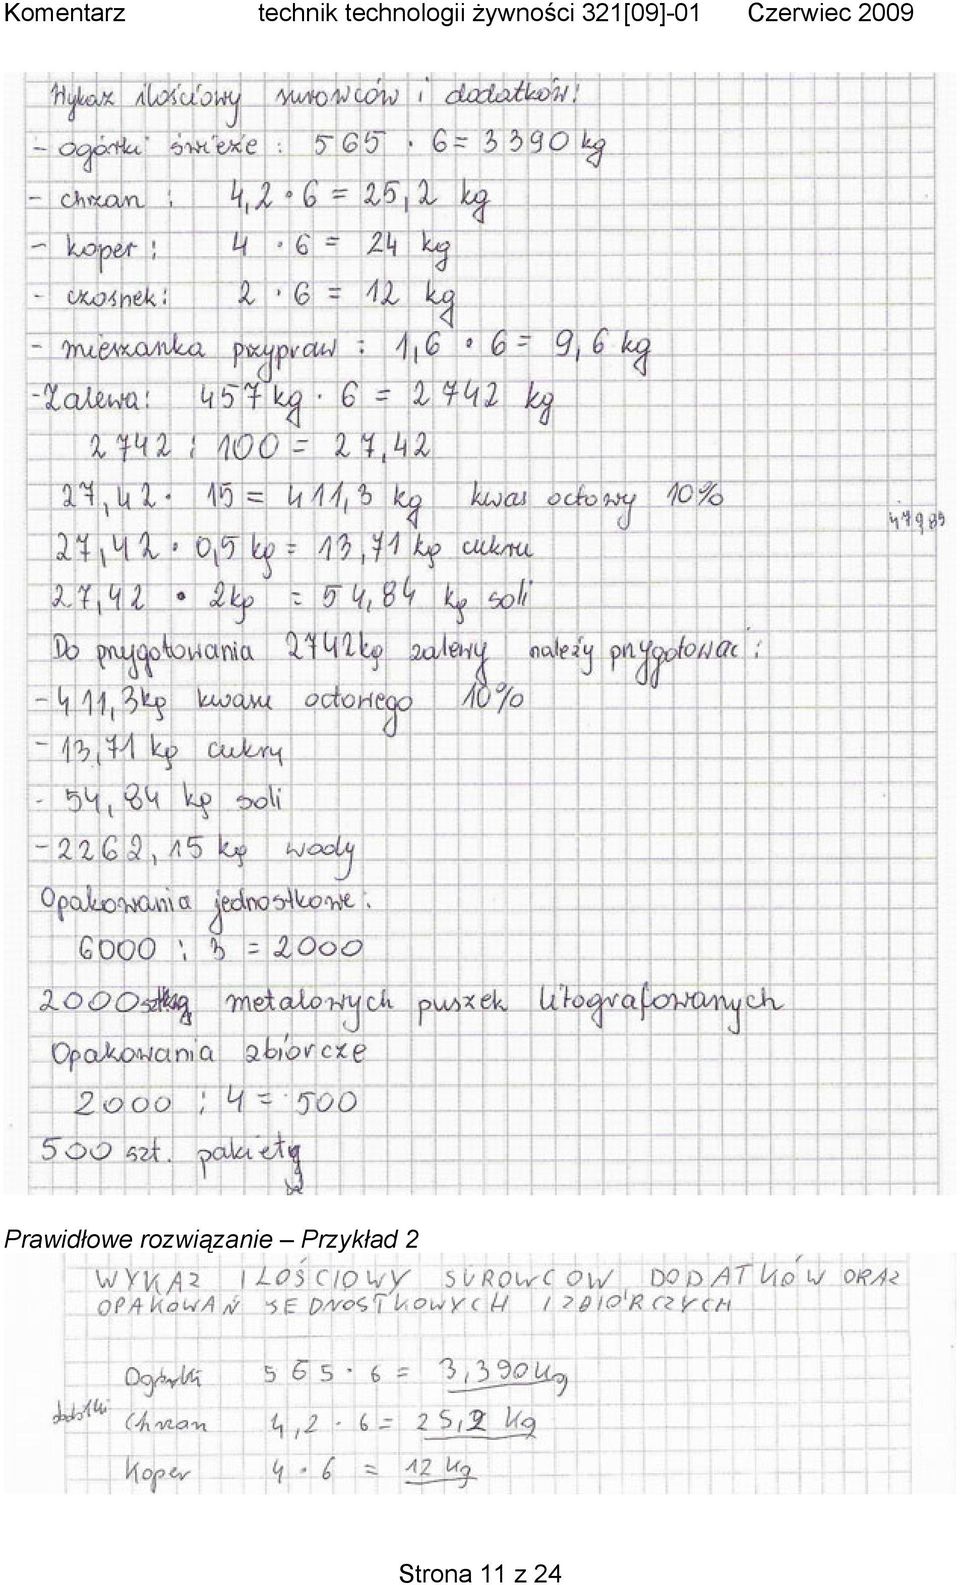 Komentarz technik technologii żywności 321[09]-01 Czerwiec 2009
Wykaz ilościowy surowców i dodatków:
- ogórki świeże : 565 · 6 = 3390 kg
- chrzan : 4,2 · 6 = 25,2 kg
- koper : 4 · 6 = 24 kg
- czosnek : 2 · 6 = 12 kg
- mieszanka przypraw : 1,6 · 6 = 9,6 kg
- Zalewa : 457 kg · 6 = 2742 kg
2742 : 100 = 27,42
27,42 · 15 = 411,3 kg kwas octowy 10%
47985
27,42 · 0,5 kg = 13,71 kg cukru
27,42 · 2kg = 54,84 kg soli
Do przygotowania 2742kg zalewy należy przygotować :
- 411,3kg kwasu octowego 10%
- 13,71 kg cukru
- 54,84 kg soli
- 2262,15 kg wody
Opakowania jednostkowe :
6000 : 3 = 2000
2000 metalowych puszek litografowanych
Opakowania zbiorcze
2000 : 4 = 500
500 szt. pakiety
Prawidłowe rozwiązanie – Przykład 2
WYKAZ ILOŚCIOWY SUROWCOW DODATKÓW ORAZ
OPAKOWAŃ JEDNOSTKOWYCH I ZBIORCZYCH
Ogórki 565 · 6 = 3,390 Kg
dodatki Chrzan 4,2 · 6 = 25,2 Kg
Koper 4 · 6 = 12 Kg
Strona 11 z 24